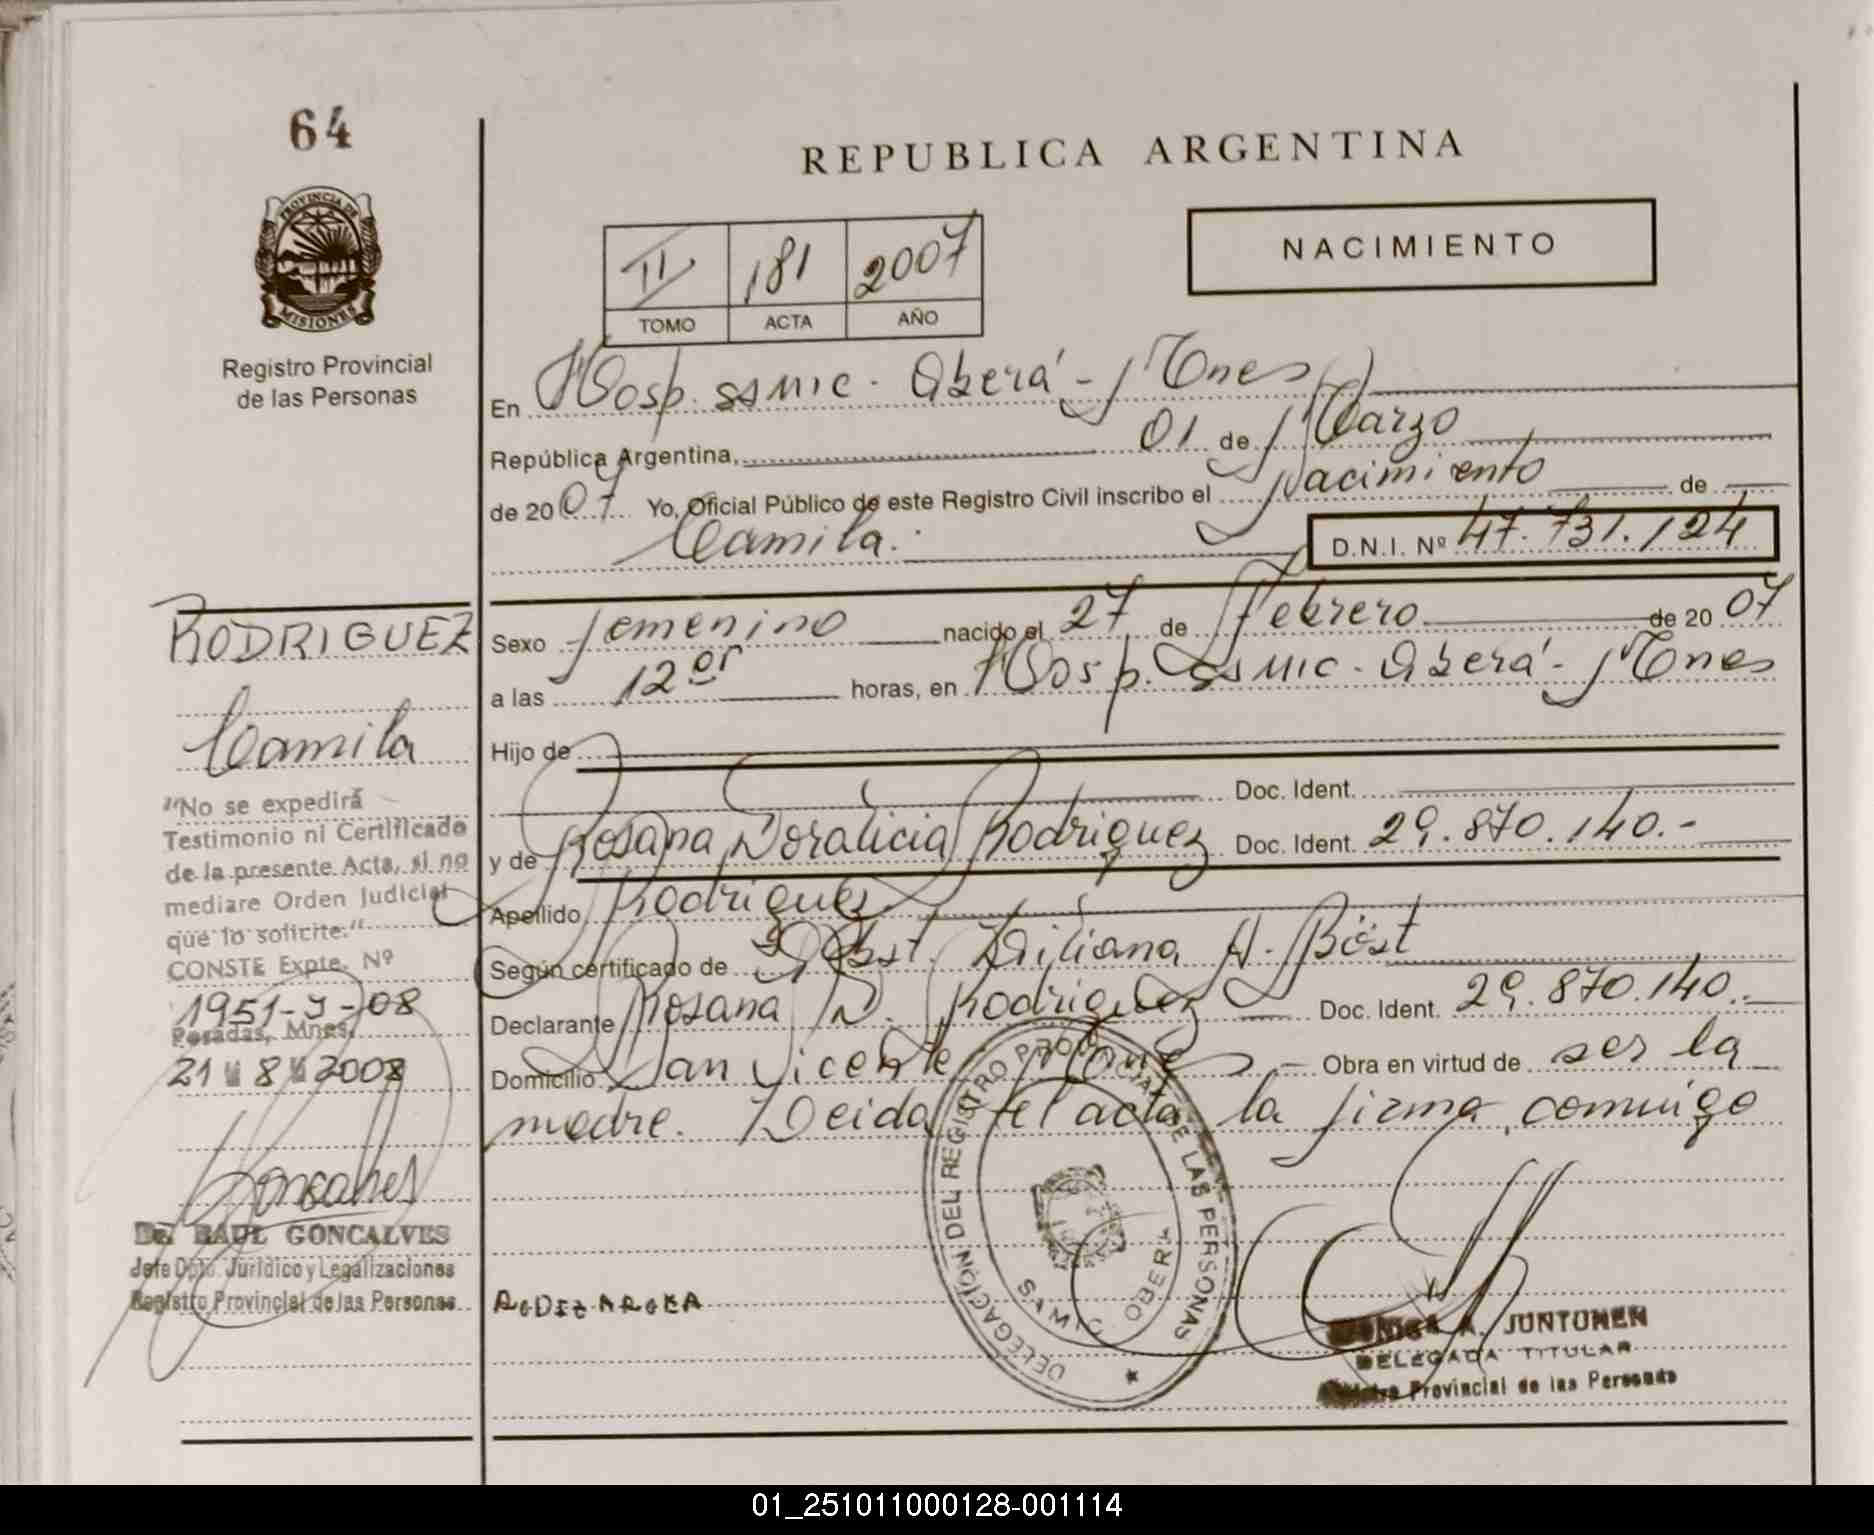 64
REPUBLICA ARGENTINA
PROVINCIA DE
MISIONES
Registro Provincial
de las Personas
II 181 2007
TOMO ACTA AÑO
NACIMIENTO
En Hosp. ssmic. Oberá - Mnes
República Argentina, 01 de Marzo
de 2007 Yo, Oficial Público de este Registro Civil inscribo el Nacimiento de
Camila.
D.N.I. Nº 47.731.124
RODRIGUEZ
Camila
"No se expedirá
Testimonio ni Certificado
de la presente Acta, si no
mediare Orden Judicial
que lo solicite."
CONSTE Expte. Nº
1951-J-08
Posadas, Mnes.
21 8 2008
Goncalves
Dr. RAUL GONCALVES
Jefe Dpto. Jurídico y Legalizaciones
Registro Provincial de las Personas
Sexo femenino nacido el 27 de Febrero de 2007
a las 12 or horas, en Hosp. ssmic. Oberá - Mnes
Hijo de
Doc. Ident.
y de Rosana Doralicia Rodriguez Doc. Ident. 29.870.140.-
Apellido Rodriguez
Según certificado de Obst. Liliana A. Böst
Declarante Rosana D. Rodriguez Doc. Ident. 29.870.140.-
Domicilio San Vicente Mnes - Obra en virtud de ser la
madre. Leida el acta la firma comuigo
RoDIz ARoKA
DELEGACIÓN DEL REGISTRO PROVINCIAL DE LAS PERSONAS
SAMIC OBERA
A. JUNTUNEN
DELEGADA TITULAR
Registro Provincial de las Personas
01_251011000128-001114